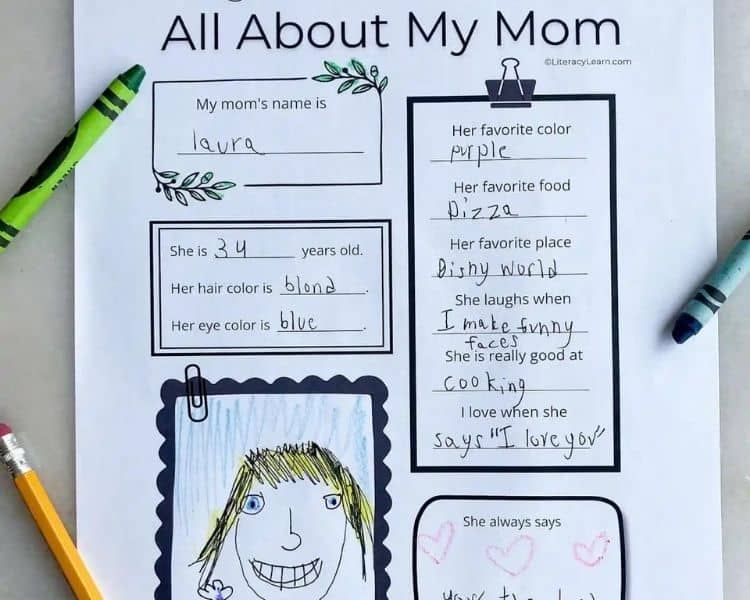 All About My Mom
©LiteracyLearn.com
My mom's name is
laura
She is 34 years old.
Her hair color is blond.
Her eye color is blue.
Her favorite color
purple
Her favorite food
Pizza
Her favorite place
Disny world
She laughs when
I make funny
faces
She is really good at
cooking
I love when she
says "I love you"
She always says
GREEN